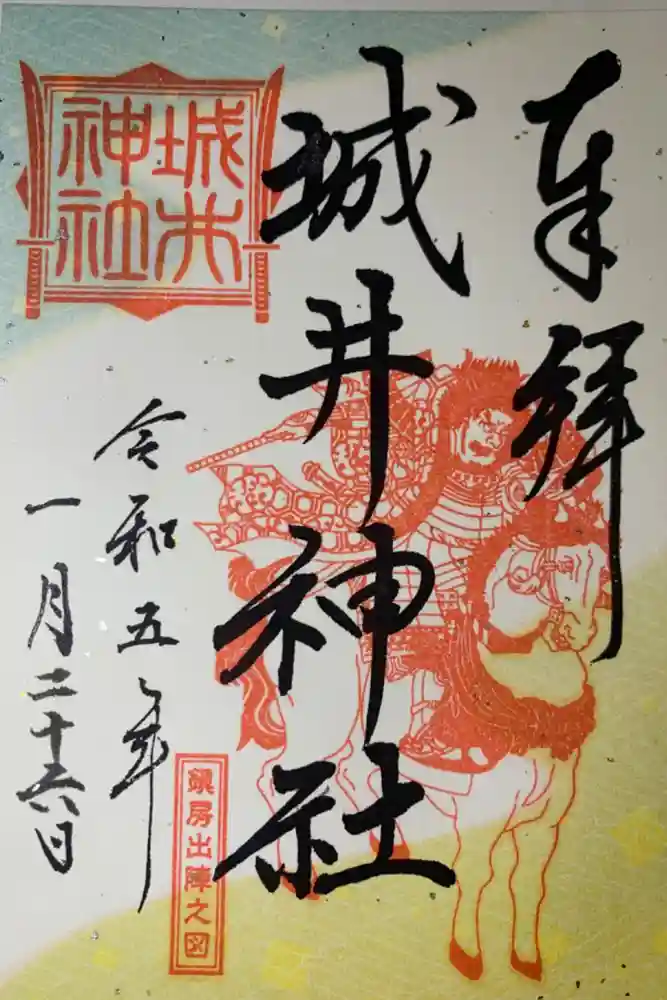 奉拝
城井神社
令和五年
一月二十六日
城井
神社
鎮房出陣之図